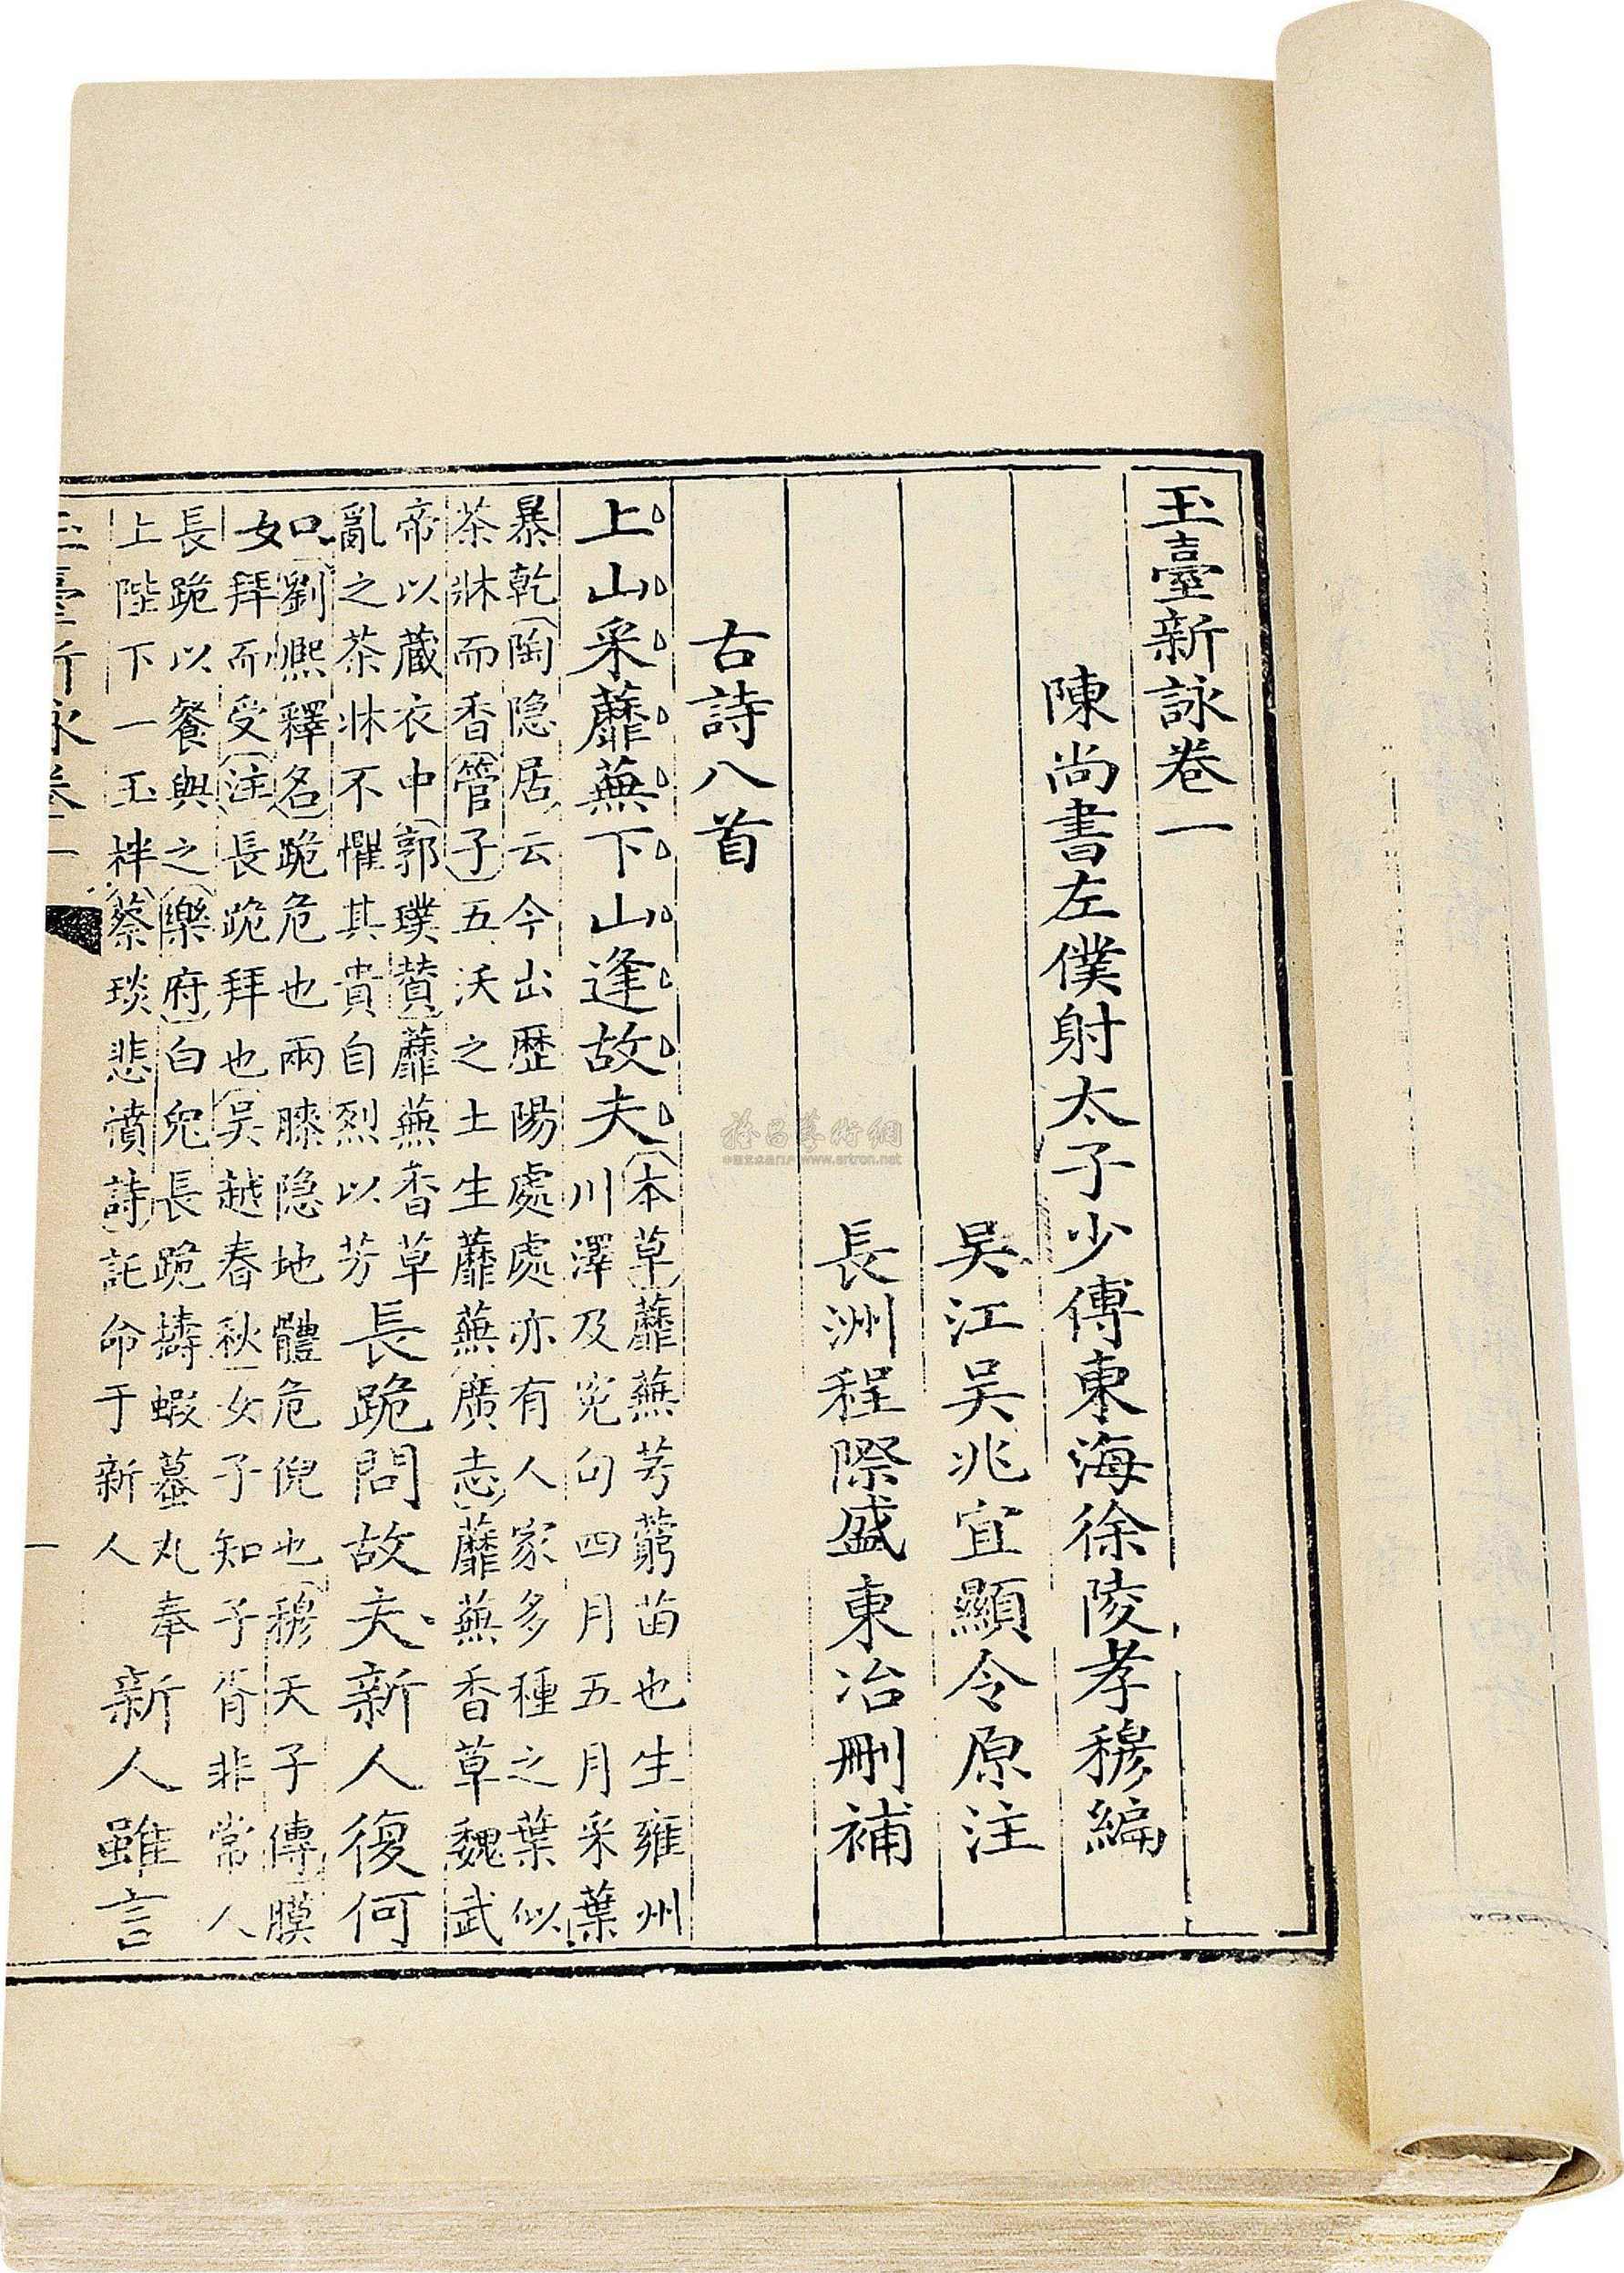 玉臺新詠卷一
陳尚書左僕射太子少傅東海徐陵孝穆編
吳江吳兆宜顯令原注
長洲程際盛東冶刪補
古詩八首
上山采蘼蕪下山逢故夫本草蘼蕪芎藭苗也生雍州
川澤及寃句四月五月采葉
暴乾陶隐居云今出歷陽處處亦有人家多種之葉似
茶牀而香管子五沃之土生蘼蕪廣志蘼蕪香草魏武
帝以藏衣中郭璞贊蘼蕪香草
亂之茶牀不懼其貴自烈以芳長跪問故夫新人復何
如劉熈釋名跪危也兩膝隐地體危倪也穆天子傳膜
拜而受注長跪拜也吳越春秋女子知子胥非常人
長跪以餐與之樂府白兔長跪擣蝦蟇丸奉
上陛下一玉柈蔡琰悲憤詩託命于新人新人雖言
玉臺新詠卷一
一
雅昌藝術網
www.artron.net